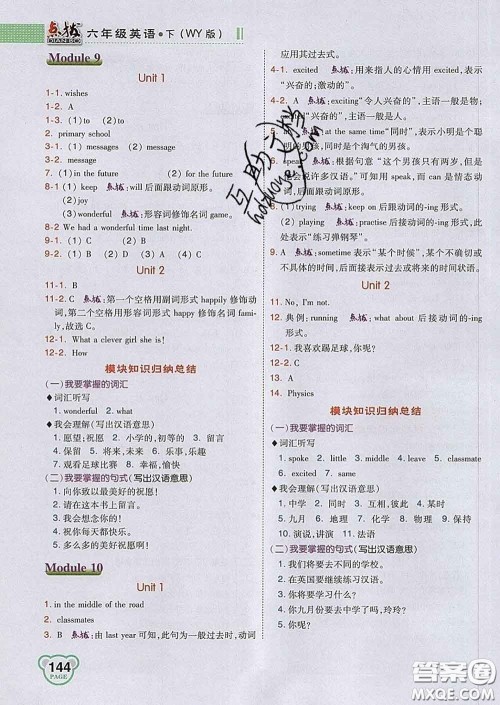 点拨 六年级英语·下(WY版)
DIAN BO
Module 9
Unit 1
1-1. wishes
1-2. A
1-3. (1)to (2)to
2. primary school
3-1. message
3-2. message
7. in
8-1 (1) keep 点拨:will后面跟动词原形。
(2)joy
(3) wonderful 点拨:形容词修饰名词game。
8-2 We had a wonderful time last night.
9-1. (1) C (2) B
9-2. (1) D (2) A
Unit 2
11-1. B
11-2. C 点拨:第一个空格用副词形式 happily 修饰动
词,第二个空格用形容词形式 happy 修饰名词 fami-
ly,故选 C。
12-1. What a clever girl she is!
12-2. How
模块知识归纳总结
(一)我要掌握的词汇
◆词汇听写
1. wonderful 2. what
◆我会理解(写出汉语意思)
1. 愿望;祝愿 2. 小学的,初等的 3. 留言
4. 保留 5. 将来,未来 6. 乐事,乐趣
7. 观看足球比赛 8. 幸福,愉快
(二)我要掌握的句式(写出汉语意思)
1. 向你致以最美好的祝愿!
2. 请在这本书上留言。
3. 我会想念你的!
4. 我们度过了美好的时光。
5. 多么多的美好祝愿啊!
Module 10
Unit 1
1. in the middle of the road
2. classmates
3. B 点拨:由 last year 可知,此句为一般过去时,动词
144
PAGE
应用其过去式。
4-1. excited 点拨:用来指人的心情用 excited,表示
“兴奋的;激动的”。
4-2. A 点拨:exciting“令人兴奋的”,主语一般是物;
excited“兴奋的”,主语一般是人。
at the same time“同时”,表示小明是个聪
明的男孩,同时是个淘气的男孩。
6. speak 点拨:根据句意“这个男孩只有两岁,但是
会说许多汉语”。speak 可意为“说”,而 can 是情态动
词,后面跟动词原形。
(1) trying 点拨:keep 后跟动词的-ing 形式。
(2) playing 点拨:practise 后跟动词的-ing 形式,此
处表示“练习弹钢琴”。
C 点拨:sometime 表示“某个时候”,某个不确切或
不具体的时间,表示将来或者过去的时间状语。
Unit 2
11. No, I'm not.
12. 典例:running 点拨:what about 后接动词的-ing
形式。
12-1. 我喜欢踢足球,你呢?
12-2. C
13. A
14. Physics
模块知识归纳总结
(一)我要掌握的词汇
◆词汇听写
1. spoke 2. little 3. middle 4. leave 5. classmate
6. excited 7. same
◆我会理解(写出汉语意思)
1. 中学 2. 同时 3. 互相,彼此 4. 或者
5. 九月 6. 地理 7. 化学 8. 物理 9. 保持
10. 演说,讲演 11. 法语
(二)我要掌握的句式(写出汉语意思)
1. 我们将要去不同的学校。
2. 在英国要继续练习汉语。
3. 你将要学习什么?
4. 你九月份要去中学了吗,玲玲?
5. 你们呢?
互助文档
huzuoye.com
答案圈
MXQE.COM